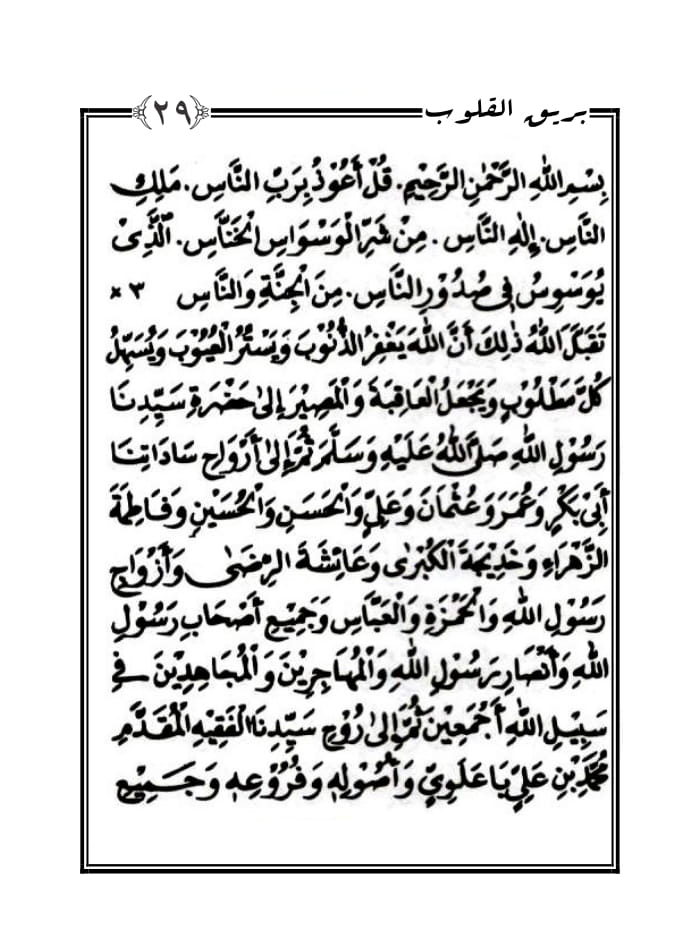 بريق القلوب ﴿٢٩﴾
بِسْمِ اللهِ الرَّحْمٰنِ الرَّحِيْمِ. قُلْ أَعُوْذُ بِرَبِّ النَّاسِ. مَلِكِ
النَّاسِ. إِلٰهِ النَّاسِ. مِنْ شَرِّ الْوَسْوَاسِ الْخَنَّاسِ. اَلَّذِىْ
يُوَسْوِسُ فِى صُدُوْرِ النَّاسِ. مِنَ الْجِنَّةِ وَالنَّاسِ ٣ ×
تَقَبَّلَ اللهُ ذٰلِكَ أَنَّ اللهَ يَغْفِرُ الذُّنُوْبَ وَيَسْتُرُ الْعُيُوْبَ وَيُسَهِّلُ
كُلَّ مَطْلُوْبٍ وَيَجْعَلُ الْعَاقِبَةَ وَالْمَصِيْرَ إِلىٰ حَضْرَةِ سَيِّدِنَا
رَسُوْلِ اللهِ صَلَّى اللهُ عَلَيْهِ وَسَلَّمَ ثُمَّ إِلىٰ أَرْوَاحِ سَادَاتِنَا
أَبِىْ بَكْرٍ وَعُمَرَ وَعُثْمَانَ وَعَلِيٍّ وَالْحَسَنِ وَالْحُسَيْنِ وَفَاطِمَةَ
الزَّهْرَاءِ وَخَدِيْجَةَ الْكُبْرٰى وَعَائِشَةَ الرِّضَىٰ وَأَزْوَاجِ
رَسُوْلِ اللهِ وَالْحَمْزَةِ وَالْعَبَّاسِ وَجَمِيْعِ أَصْحَابِ رَسُوْلِ
اللهِ وَأَنْصَارِ رَسُوْلِ اللهِ وَالْمُهَاجِرِيْنَ وَالْمُجَاهِدِيْنَ فِي
سَبِيْلِ اللهِ أَجْمَعِيْنَ ثُمَّ إِلىٰ رُوْحِ سَيِّدِنَا الْفَقِيْهِ الْمُقَدَّمِ
مُحَمَّدِ بْنِ عَلِيٍّ بَاعَلَوِيّ وَأُصُوْلِهِ وَفُرُوْعِهِ وَجَمِيْعِ